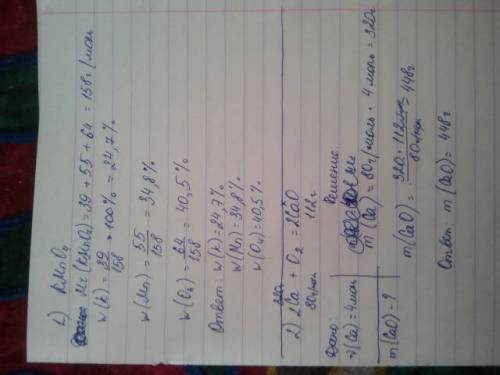 1) KMnO4
Mr(KMnO4) = 39 + 55 + 64 = 158г/моль
w(k) = 39/158 * 100% = 24,7%
w(Mn) = 55/158 = 34,8%
w(O4) = 64/158 = 40,5%
Ответ: w(k) = 24,7%
w(Mn) = 34,8%
w(O4) = 40,5%
320г x
2) 2Ca + O2 = 2CaO
80г/моль 112г
Дано:
ν(Ca) = 4моль
m(CaO) - ?
Решение:
m(Ca) = 80г/моль · 4моль = 320г
m(CaO) = 320г · 112г/моль / 80г/моль = 448г
Ответ: m(CaO) = 448г